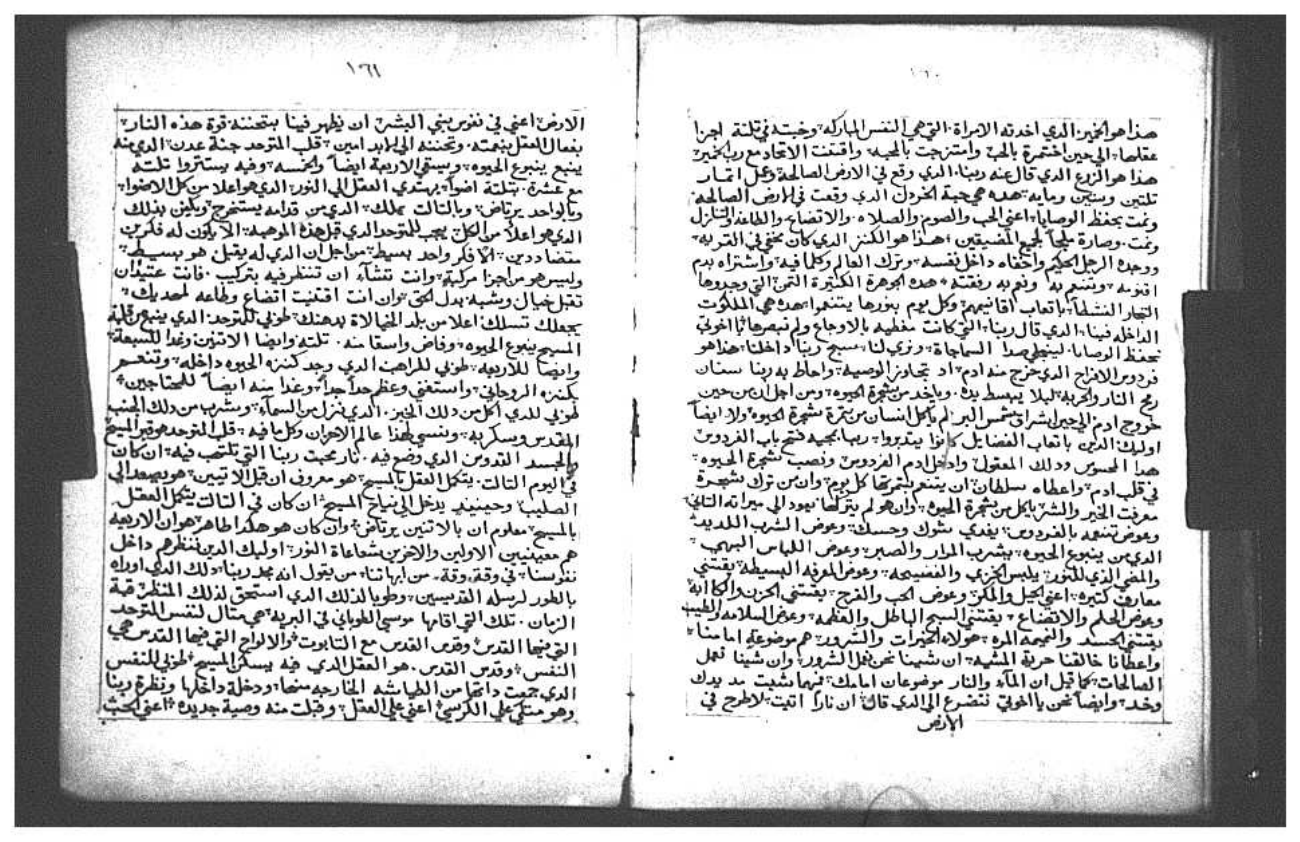 ١٦٠
هذا هو الخير، الدي اخدته الامراة، التي هي النفس المباركه، وخبته في تلتة اجزا
عقلها، الي حين اختمرة بالحب وامتزجت بالمحبه، واقتنت الاتحاد مع رب الخير،
هدا هو الزرع الدي قال عنه ربنا، الدي وقع في الارض الصالحه، وعمل اتمار
تلتين وستين ومايه، هده هي حبة الخردل الدي وقعت في الارض الصالحه،
ونمت بحفظ الوصايا، اعني الحب والصوم والصلاه، والاتضاع والطاعه والتنازل
ونمت، وصارة ملجأ لجميع المضيقين، هدا هو الكنز الدي كان مخفي في القريه،
ووجده الرجل الحكيم واخفاه داخل نفسه، وترك العالم وكلما فيه، واشتراه بدم
اقنومه، ويتنعم به، ونعم به رفقته، هده الجوهرة الكتيرة التمن التي وجدوها
التجار النشطاء، باتعاب اقانيمهم، وكل يوم بنورها يتنعموا، هده هي الملكوت
الداخله فينا، الدي قال ربنا، التي كانت مغطيه بالاوجاع ولم نبصرها، يا اخوتي
نحفظ الوصايا، لينجلي صدا السماجاة، ونري لنا، مسيح ربنا داخلنا، هدا هو
فردوس الافراح الدي خرج منه ادم، اد تجاوز الوصيه، واحاط به ربنا سنان
رمح النار والحربه، ليلا يبسط يده، وياخد من شجرة الحيوه، ومن اجل ان من حين
خروج ادم الي حين اشراق شمس البر، لم ياكل انسان من تمرة شجرة الحيوه، ولا ايضاً
اوليك الدين باتعاب الفضايل كانوا يتدبروا، ربنا بمجيه فتح باب الفردوس
هدا المحسوس ودلك المعقول، وادخل ادم الفردوس، ونصب شجرة الحيوه،
في قلب ادم، واعطاه سلطان، ان يتنعم بتمرتها كل يوم، وان من ترك شجرة
معرفت الخير والشر، ياكل من شجرة الحيوه، وان هو لم يتركها، يعود الي ميراته التاني،
وعوض تنعمه بالفردوس، يغدي بشوك وحسك، وعوض الشرب اللديد،
الدي من ينبوع الحيوه، يشرب المرار والصبر، وعوض اللباس البهي
والمضي الذي للنور، يلبس الخزي والفضيحه، وعوض المعرفه البسيطه، يقتني
معارف كتيره، اعني الحيل والمكر، وعوض الحب والفرح، يقتني الحزن والكابة
وعوض الحلم والاتضاع، يقتني السبح الباطل والعظمه، وعوض السلامه والطيب
يقتني الحسد والنميمه المره، هولاء الخيرات والشرور، هم موضوعة امامنا،
واعطانا خالقنا حرية المشيه، ان شينا نحن نعمل الشرور، وان شينا نعمل
الصالحات، كما قيل ان الماء والنار موضوعان امامك، فمهما شيت مد يدك
وخد، وايضاً نحن يا اخوتي نتضرع الي الدي قال، ان ناراً اتيت، لاطرح في
الارض
١٦١
الارض، اعني في نفوس بني البشر، ان يظهر فينا بتحننه قوة هده النار،
بفعال العقل بنعمته، وتحننه الي الابد امين، قلب المتوحد جنة عدن، الدي منه
ينبع ينبوع الحيوه، ويسقي الاربعة ايضاً والخمسه، وفيه يستتروا تلتة
مع عشرة، بتلتة اضواً، يهتدي العقل الي النور، الدي هو اعلا من كل الاضوا،
وبالواحد يرتاض، وبالتالت يملك، الدي من قدامه يستخرج، ويكون بدلك
الدي هو اعلا من الكل، يجب للمتوحد الدي قبل هده الموهبه، الا يكون له فكرين
متضاددين، الا فكر واحد بسيط، من اجل ان الدي له يقبل هو بسيط،
وليس هو من اجزا مركبة، وانت تشاء ان تنظر فيه بتركيب، فانت عتيدان
تقبل خيال وشبه بدل الحق، وان انت اقتنيت اتضاع وطاعه لمعديك،
يجعلك تسلك اعلا من بلد الخيالاة بدهنك، طوبي للمتوحد، الدي ينبع من قلبه
المسيح ينبوع الحيوه، وفاض واسقا منه، تلته وايضا الاتنين وغدا للسبعة،
وايضاً للاربعه، طوبي للراهب الدي وجد كنزه الحيوه داخله، وتنعم
بكنزه الروحاني، واستغني وعظم جداً جداً، وغدا منه ايضاً للمحتاجين،
طوبي للدي اكل من دلك الخبز، الدي نزل من السماء، وشرب من دلك الجنب
المقدس وسكر به، ونسي لهدا عالم الاحزان وكل ما فيه، قلب المتوحد هو قبر المسيح
بالجسد القدوس الدي وضع فيه، نار محبت ربنا التي تلتهب فيه، ان كان
في اليوم التالت، يتكل العقل بالمسيح، هو معروف ان قبل الاتنين، هو يصعد الي
الصليب، وحينيد يدخل الي نياح المسيح، ان كان في التالت يتكل العقل
بالمسيح، معلوم ان بالاتنين يرتاض، وان كان هو هكدا طاهر، هو ان الاربعه
هم معينيين الاولين والاخرين بشعاعاة النور، اوليك الدين ننظرهم داخل
نفوسنا، في وقة، وقة، من ابهاتنا، من يقول انه مجد ربنا، دلك الدي اوراه
بالطور لرسله القديسين، وطوبا لدلك الدي استحق لدلك المنظر، قبة
الزمان، تلك التي اقامها موسي الطوباني في البريه، هي متال لنفس المتوحد
التي فيها القدس، وقدس القدس مع التابوت، والالواح التي فيها القدس هي
النفس، وقدس القدس، هو العقل الدي فيه يسكن المسيح، طوبي للنفس
الدي جمعت داتها من الطياشه الخارجه منها، ودخلة داخلها ونظرة ربنا
وهو متكي علي الكرسي، اعني علي العقل، وقبلت منه وصية جديده، اعني الحب